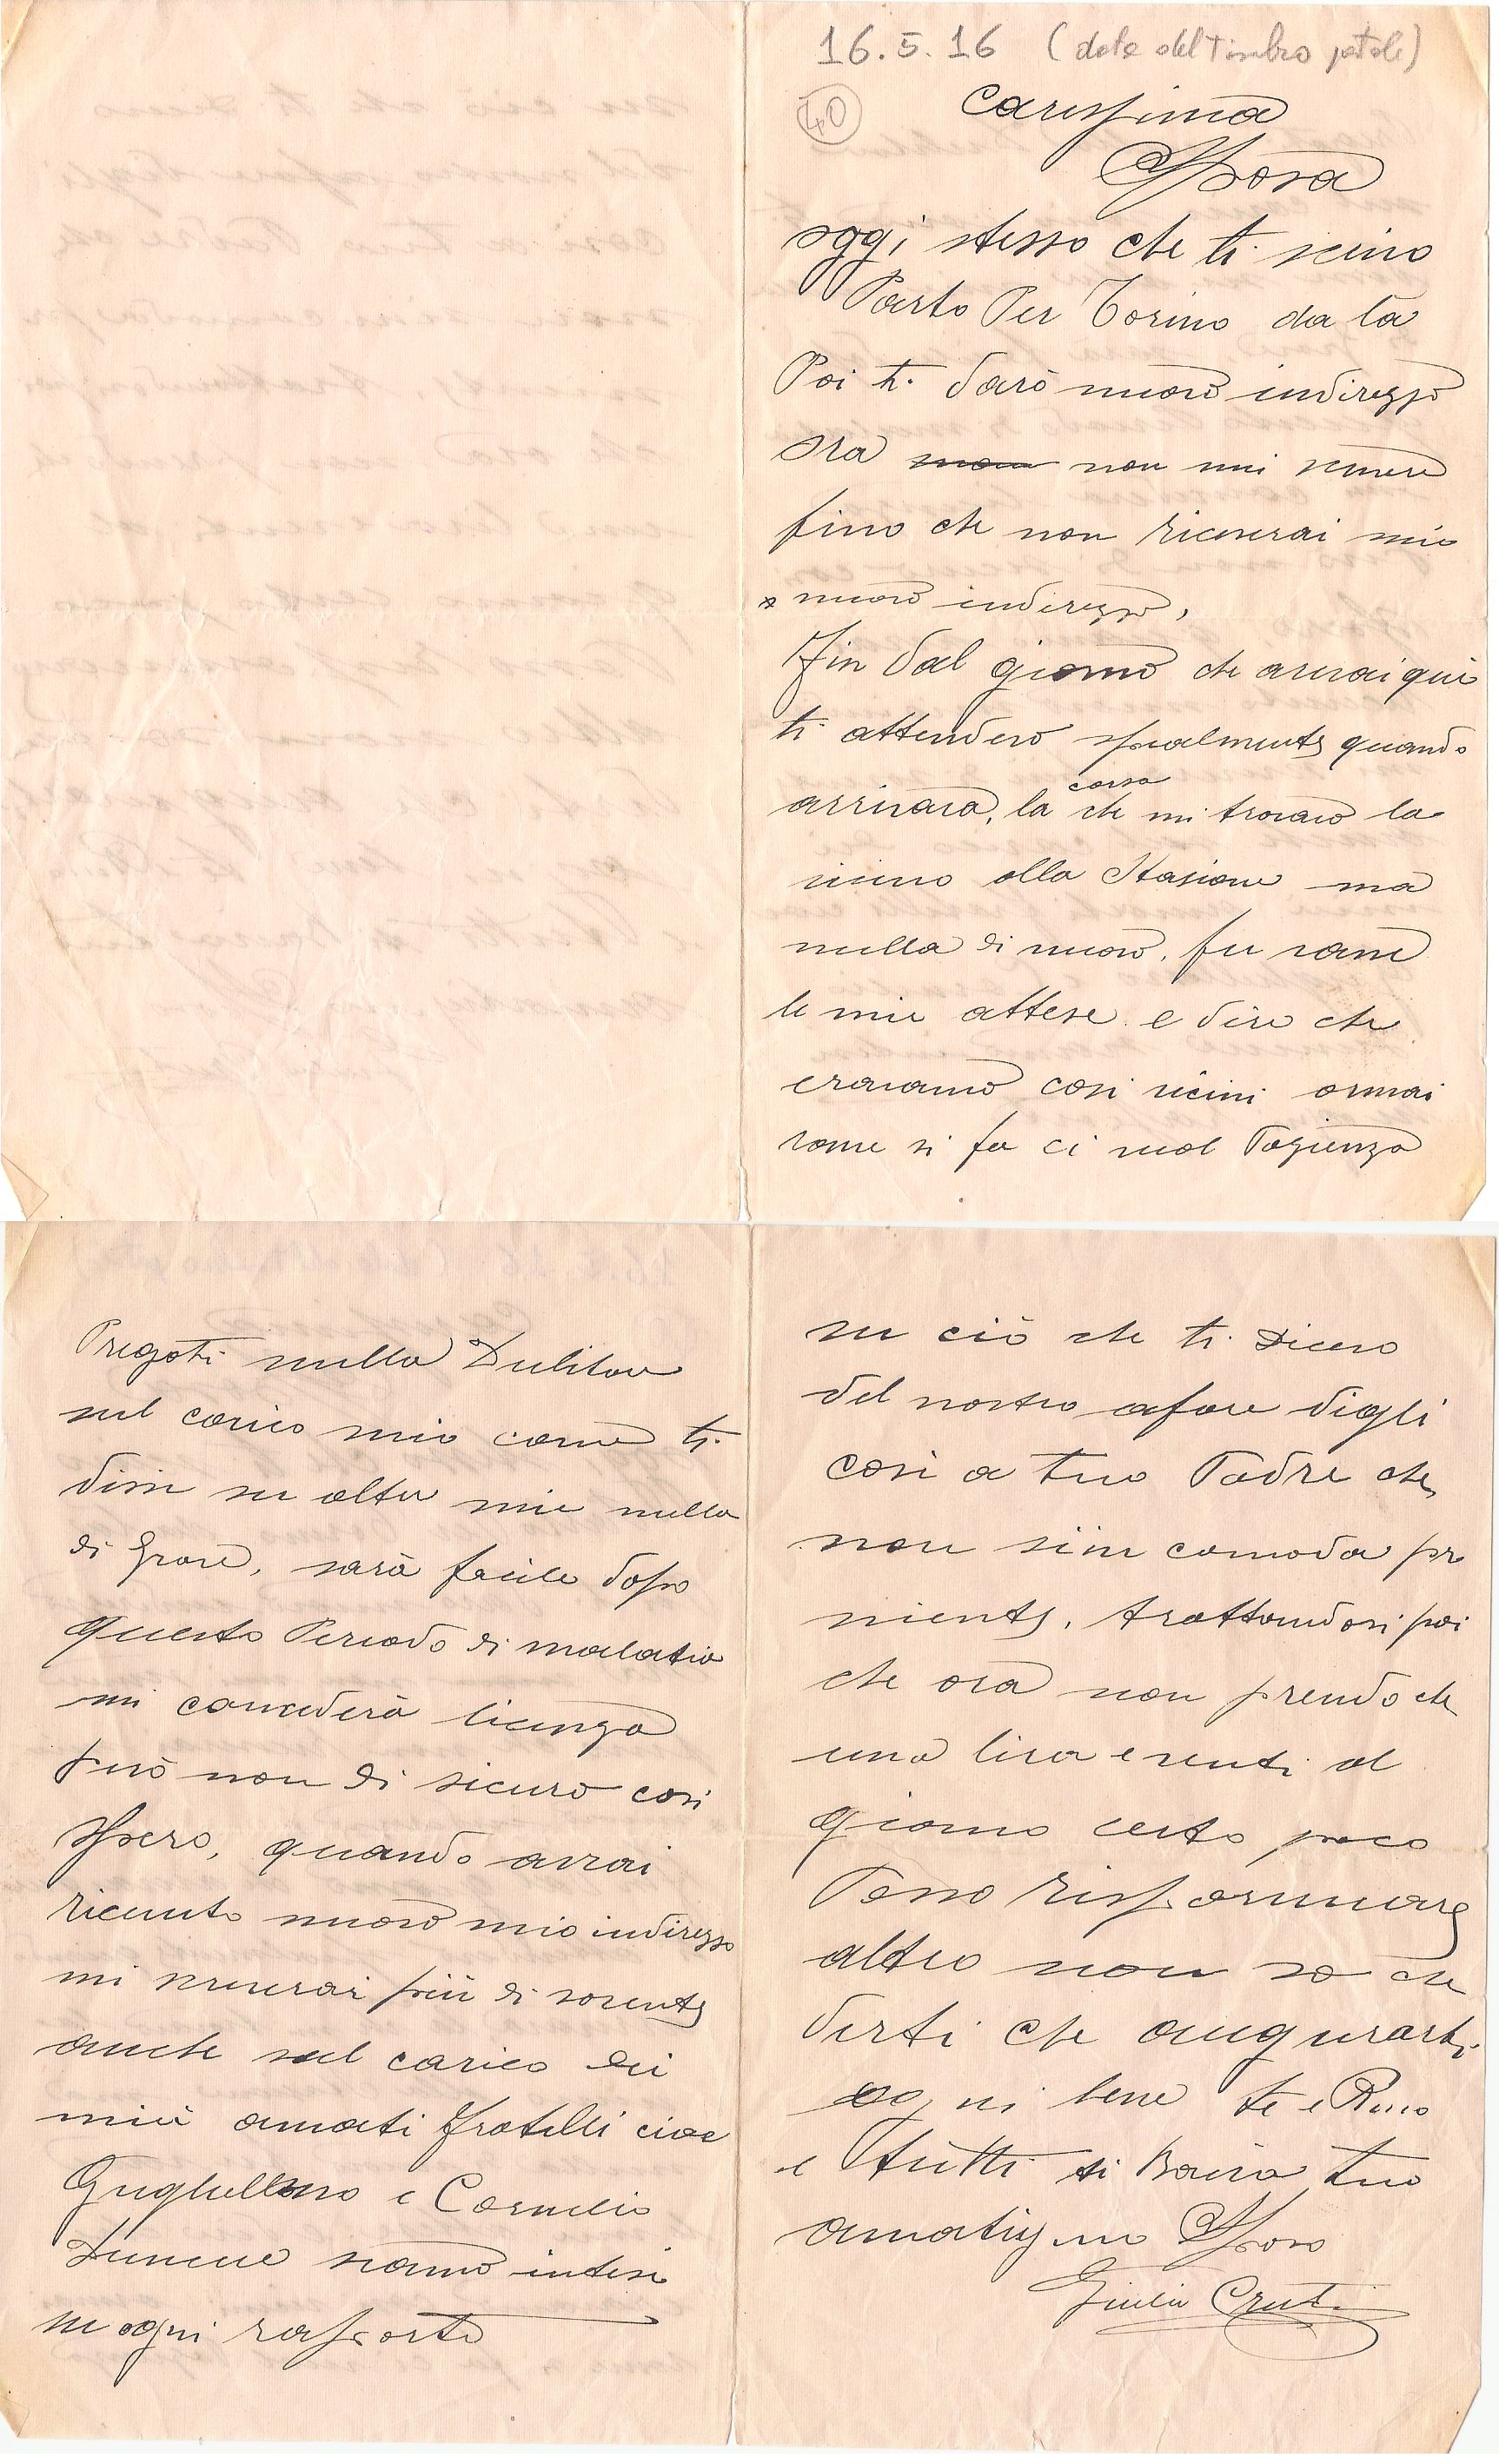 16.5.16 (data del timbro postale)
40
Carissima
Sposa
oggi stesso che ti scrivo
Parto Per Torino da la
Poi ti darò nuovo indirizzo
ora non non mi scrivere
fino che non riceverai mio
nuovo indirizzo,
Fin dal giorno che arrivai qui
ti attendevo specialmente quando
arrivava, la corsa che mi trovavo la
vicino alla Stasione ma
nulla di nuovo, fu vane
le mie attese e dire che
eravamo cosi vicini ormai
come si fa ci vuol Pazienza
Pregoti nulla Dubitare
sul carico mio come ti
dissi su altra mia nulla
di Grave, sarà facile dopo
questo Periodo di malatia
mi concederà licenza
però non di sicuro cosi
spero, quando avrai
ricevuto nuovo mio indirizzo
mi scriverai più di sovente
anche sul carico dei
miei amati fratelli cioe
Guglielmo e Cornelio
Dunque siamo intesi
su ogni rapporto
su ciò che ti dicevo
del nostro afare digli
cosi a tuo Padre che
non si in comoda per
niente, trattandosi poi
che ora non prendo che
una lira e venti al
giorno certo poco
Posso risparmiare
altro non so che
dirti che augurarti
ogni bene te e
e Tutti ti Bacia tuo
amatissimo Sposo